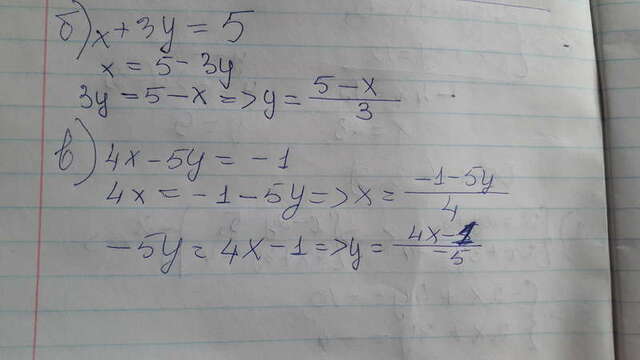 б) x+3y=5
x=5-3y
3y=5-x=>y=\frac{5-x}{3}
в) 4x-5y=-1
4x=-1-5y=>x=\frac{-1-5y}{4}
-5y=4x-1=>y=\frac{4x-1}{-5}